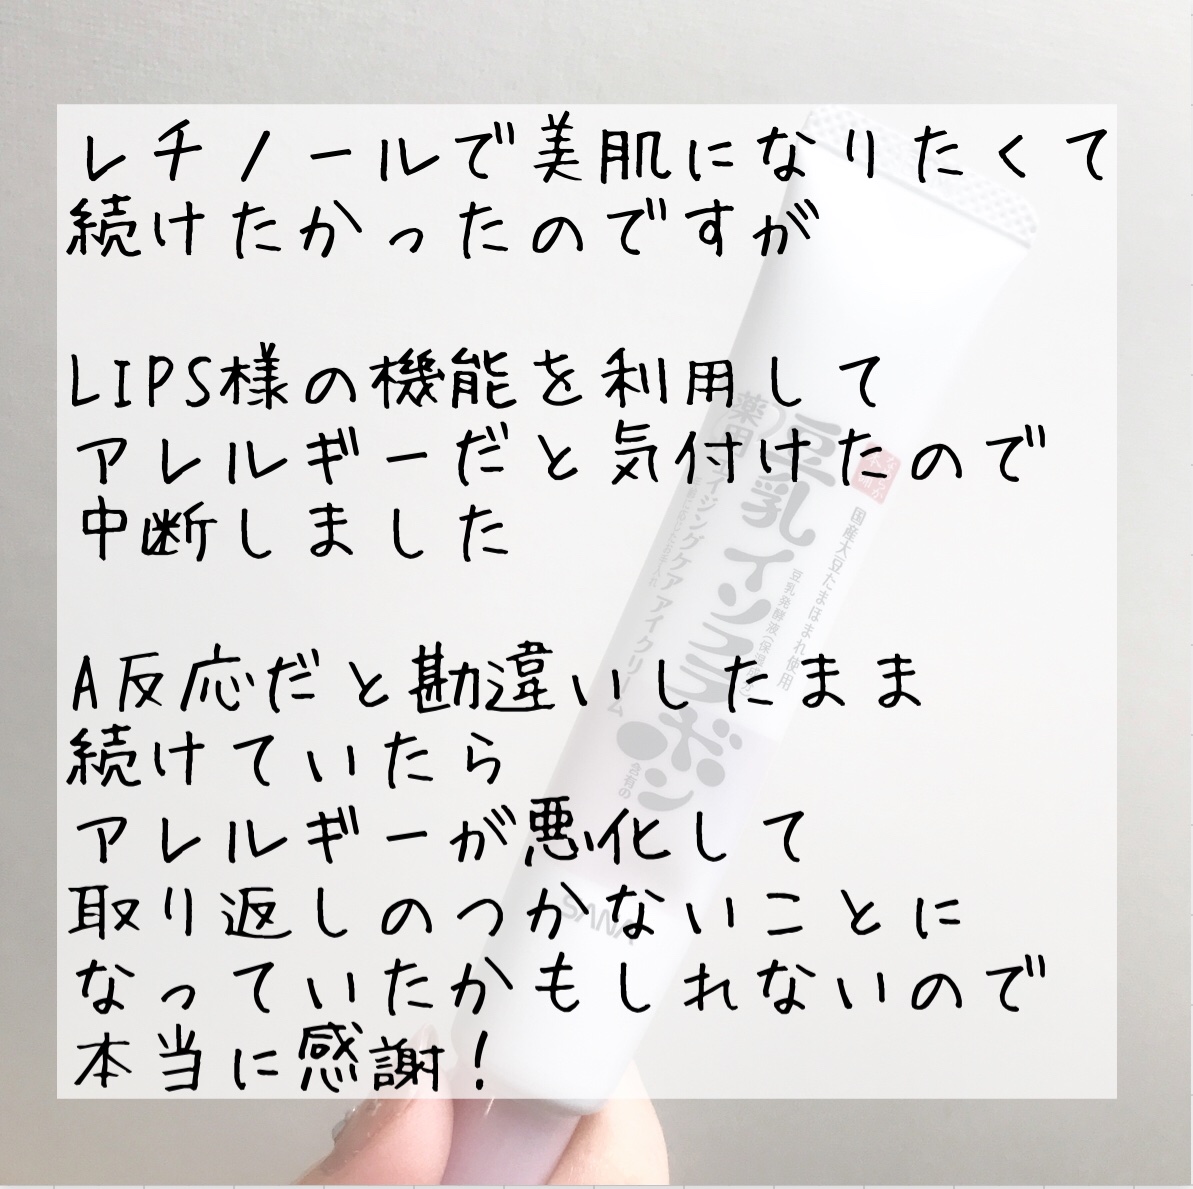 レチノールで美肌になりたくて
続けたかったのですが
LIPS様の機能を利用して
アレルギーだと気付けたので
中断しました
A反応だと勘違いしたまま
続けていたら
アレルギーが悪化して
取り返しのつかないことに
なっていたかもしれないので
本当に感謝!
なめらか本舗
国産大豆たまほまれ使用
豆乳発酵液(保湿成分)
豆乳イソフラボン
含有の
薬用リンクルケアアイクリーム
SANA